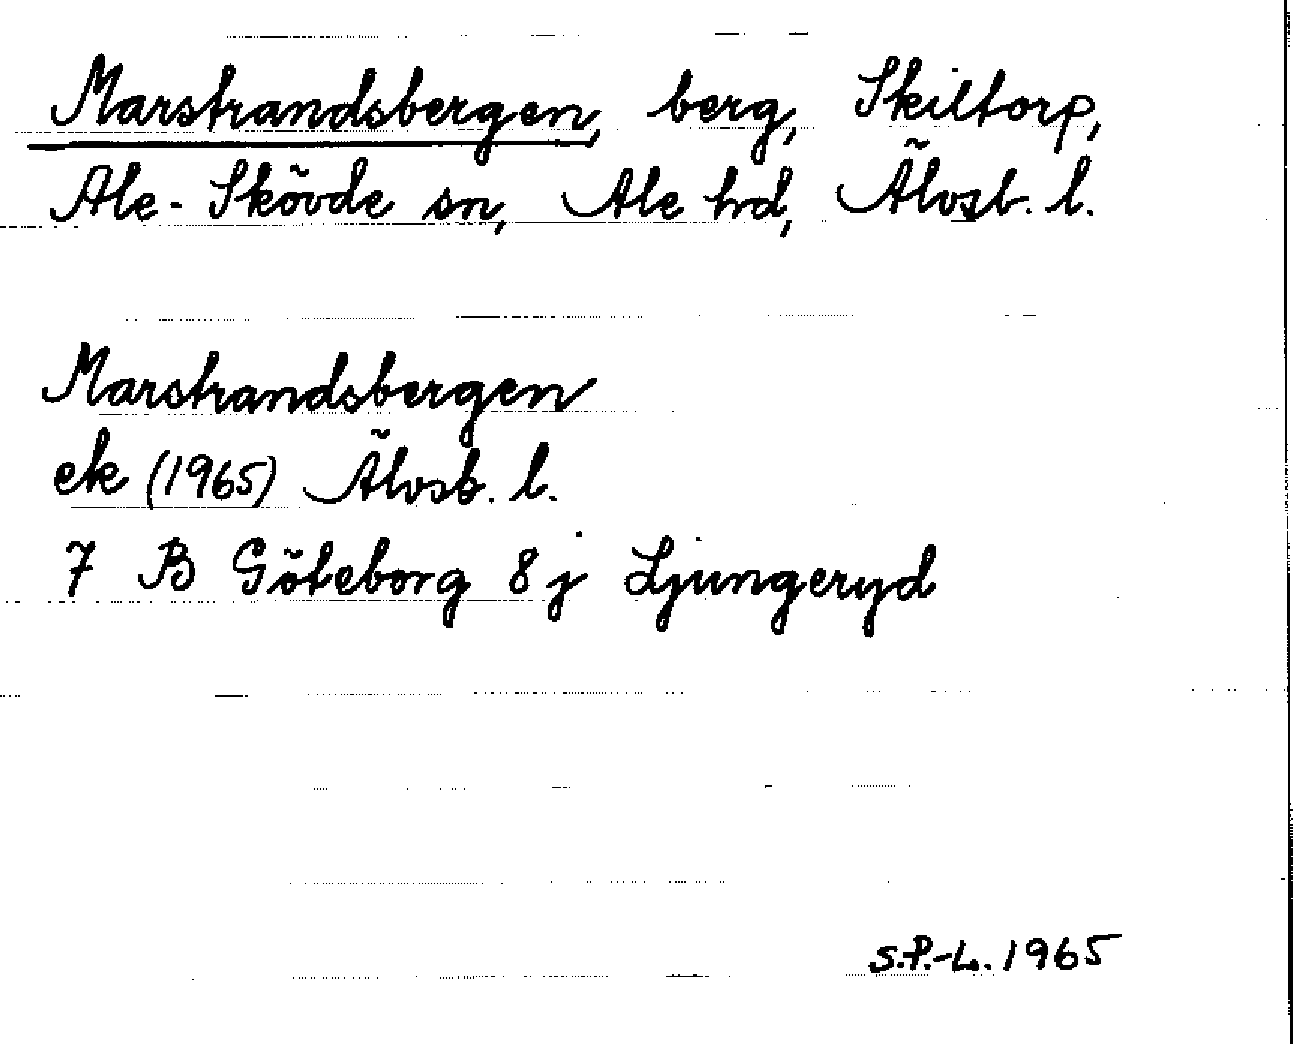 Marstrandsbergen, berg, Skiltorp,
Ale-Skövde sn, Ale hd, Älvsb. l.
Marstrandsbergen
ek (1965) Älvsb. l.
7 B Göteborg 8 j Ljungeryd
S.P.-L. 1965